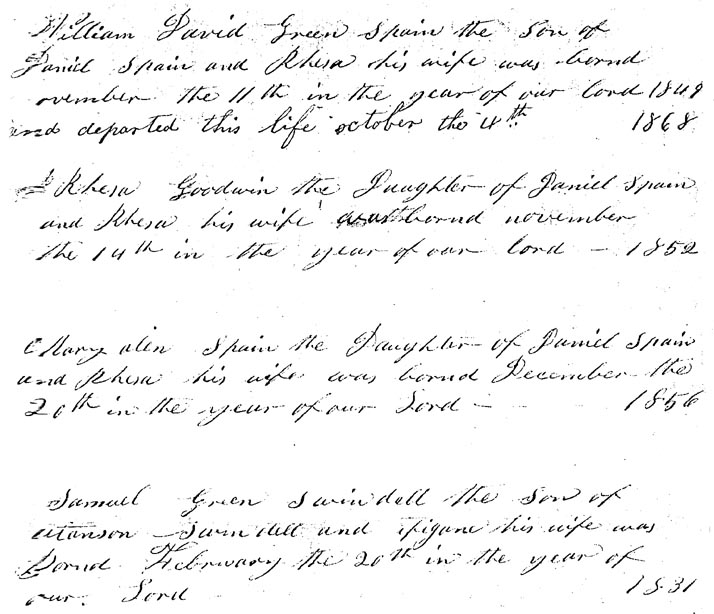 William David Green Spain the Son of
Daniel Spain and Rhesa his wife was bornd
november the 11th in the year of our lord 1849
and departed this life october the 4th 1868
Rhesa Goodwin the Daughter of Daniel Spain
and Rhesa his wife was bornd november
the 14th in the year of our lord — 1852
Mary alen Spain the Daughter of Daniel Spain
and Rhesa his wife was bornd December the
20th in the year of our Lord — 1856
Samuel Green Swindell the Son of
Swindell and his wife was
Bornd February the 20th in the year of
our Lord 1831